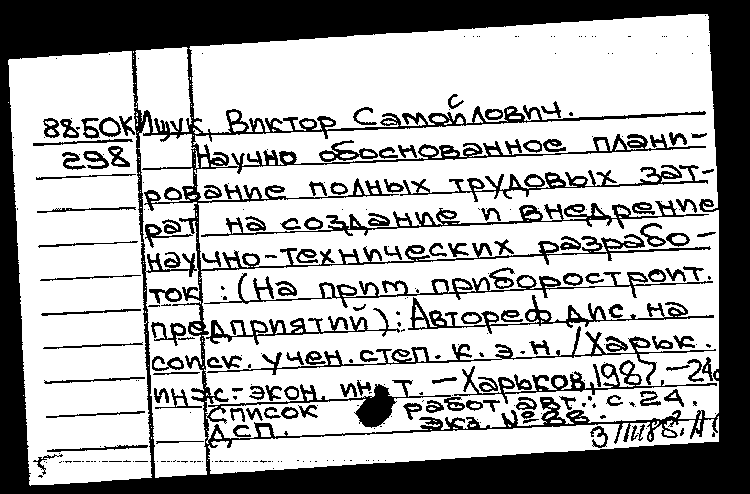 88-50К Ищук, Виктор Самойлович.
298 Научно обоснованное плани-
рование полных трудовых зат-
рат на создание и внедрение
научно-технических разрабо-
ток : (На прим. приборостроит.
предприятий) : Автореф. дис. на
соиск. учен. степ. к. э. н. / Харьк.
инж.-экон. ин-т. — Харьков, 1987. — 24с
Список работ авт.: с. 24.
ДСП. Экз. №